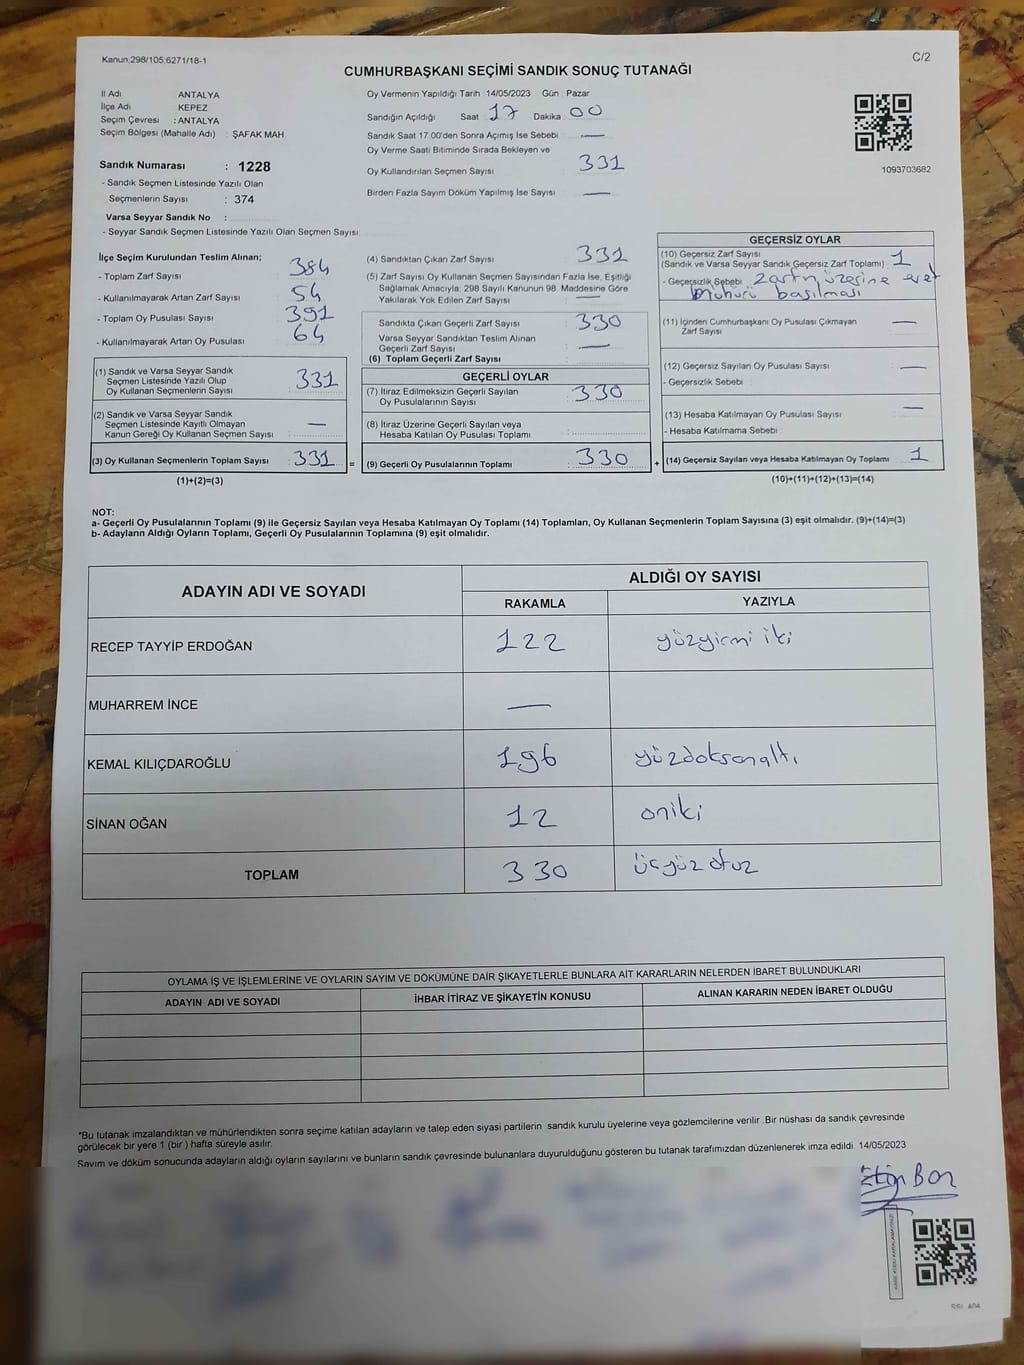 Kanun;298/105;6271/18-1
C/2
CUMHURBAŞKANI SEÇİMİ SANDIK SONUÇ TUTANAĞI
İl Adı ANTALYA
İlçe Adı KEPEZ
Seçim Çevresi : ANTALYA
Seçim Bölgesi (Mahalle Adı) : ŞAFAK MAH.
Sandık Numarası : 1228
- Sandık Seçmen Listesinde Yazılı Olan
Seçmenlerin Sayısı : 374
Varsa Seyyar Sandık No :
- Seyyar Sandık Seçmen Listesinde Yazılı Olan Seçmen Sayısı:
Oy Vermenin Yapıldığı Tarih : 14/05/2023 Gün : Pazar
Sandığın Açıldığı Saat 17 Dakika 00
Sandık Saat 17:00'den Sonra Açımış İse Sebebi —
Oy Verme Saati Bitiminde Sırada Bekleyen ve
Oy Kullandırılan Seçmen Sayısı : 331
Birden Fazla Sayım Döküm Yapılmış İse Sayısı : —
1093703682
İlçe Seçim Kurulundan Teslim Alınan;
- Toplam Zarf Sayısı : 384
- Kullanılmayarak Artan Zarf Sayısı : 54
- Toplam Oy Pusulası Sayısı : 391
- Kullanılmayarak Artan Oy Pusulası : 64
(1) Sandık ve Varsa Seyyar Sandık
Seçmen Listesinde Yazılı Olup
Oy Kullanan Seçmenlerin Sayısı : 331
(2) Sandık ve Varsa Seyyar Sandık
Seçmen Listesinde Kayıtlı Olmayan
Kanun Gereği Oy Kullanan Seçmen Sayısı : —
(3) Oy Kullanan Seçmenlerin Toplam Sayısı : 331 =
(1)+(2)=(3)
(4) Sandıktan Çıkan Zarf Sayısı : 331
(5) Zarf Sayısı Oy Kullanan Seçmen Sayısından Fazla İse, Eşitliği
Sağlamak Amacıyla; 298 Sayılı Kanunun 98. Maddesine Göre
Yakılarak Yok Edilen Zarf Sayısı : —
Sandıkta Çıkan Geçerli Zarf Sayısı : 330
Varsa Seyyar Sandıktan Teslim Alınan
Geçerli Zarf Sayısı : —
(6) Toplam Geçerli Zarf Sayısı :
GEÇERLİ OYLAR
(7) İtiraz Edilmeksizin Geçerli Sayılan
Oy Pusulalarının Sayısı : 330
(8) İtiraz Üzerine Geçerli Sayılan veya
Hesaba Katılan Oy Pusulası Toplamı :
(9) Geçerli Oy Pusulalarının Toplamı : 330 +
GEÇERSİZ OYLAR
(10) Geçersiz Zarf Sayısı : 1
(Sandık ve Varsa Seyyar Sandık Geçersiz Zarf Toplamı)
- Geçersizlik Sebebi : zarfın üzerine evet
mührü basılması
(11) İçinden Cumhurbaşkanı Oy Pusulası Çıkmayan
Zarf Sayısı : —
(12) Geçersiz Sayılan Oy Pusulası Sayısı : —
- Geçersizlik Sebebi :
(13) Hesaba Katılmayan Oy Pusulası Sayısı : —
- Hesaba Katılmama Sebebi :
(14) Geçersiz Sayılan veya Hesaba Katılmayan Oy Toplamı : 1
(10)+(11)+(12)+(13)=(14)
NOT:
a- Geçerli Oy Pusulalarının Toplamı (9) ile Geçersiz Sayılan veya Hesaba Katılmayan Oy Toplamı (14) Toplamları, Oy Kullanan Seçmenlerin Toplam Sayısına (3) eşit olmalıdır. (9)+(14)=(3)
b- Adayların Aldığı Oyların Toplamı, Geçerli Oy Pusulalarının Toplamına (9) eşit olmalıdır.
ADAYIN ADI VE SOYADI ALDIĞI OY SAYISI
RAKAMLA YAZIYLA
RECEP TAYYİP ERDOĞAN 122 yüzyirmi iki
MUHARREM İNCE —
KEMAL KILIÇDAROĞLU 196 yüzdoksanaltı
SİNAN OĞAN 12 oniki
TOPLAM 330 üçyüz otuz
OYLAMA İŞ VE İŞLEMLERİNE VE OYLARIN SAYIM VE DÖKÜMÜNE DAİR ŞİKAYETLERLE BUNLARA AİT KARARLARIN NELERDEN İBARET BULUNDUKLARI
ADAYIN ADI VE SOYADI İHBAR İTİRAZ VE ŞİKAYETİN KONUSU ALINAN KARARIN NEDEN İBARET OLDUĞU
*Bu tutanak imzalandıktan ve mühürlendikten sonra seçime katılan adayların ve talep eden siyasi partilerin sandık kurulu üyelerine veya gözlemcilerine verilir .Bir nüshası da sandık çevresinde
görülecek bir yere 1 (bir ) hafta süreyle asılır.
Sayım ve döküm sonucunda adayların aldığı oyların sayılarını ve bunların sandık çevresinde bulunanlara duyurulduğunu gösteren bu tutanak tarafımızdan düzenlenerek imza edildi. 14/05/2023